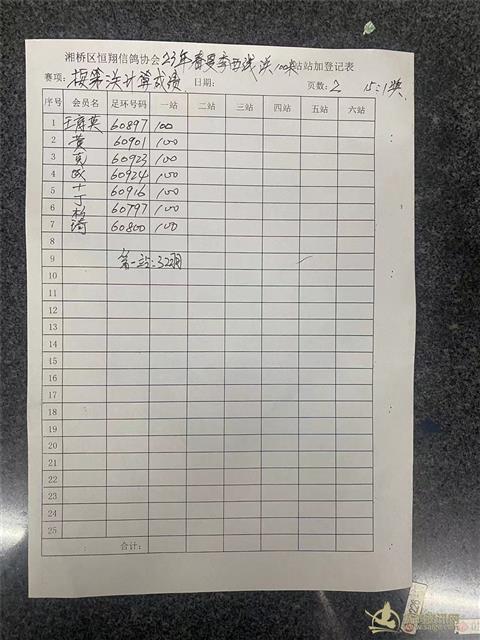 湘桥区恒翔信鸽协会23年春夏季西线洪100米站站加登记表
赛项：按第洪计算成绩 日期： 页数：2 15:1奖
序号 会员名 足环号码 一站 二站 三站 四站 五站 六站
1 60897 100
2 黄 60901 100
3 克 60923 100
4 成 60924 100
5 十 60916 100
6 丁 60797 100
7 60800 100
8
9 第一站：322羽
10
11
12
13
14
15
16
17
18
19
20
21
22
23
24
25
合计：